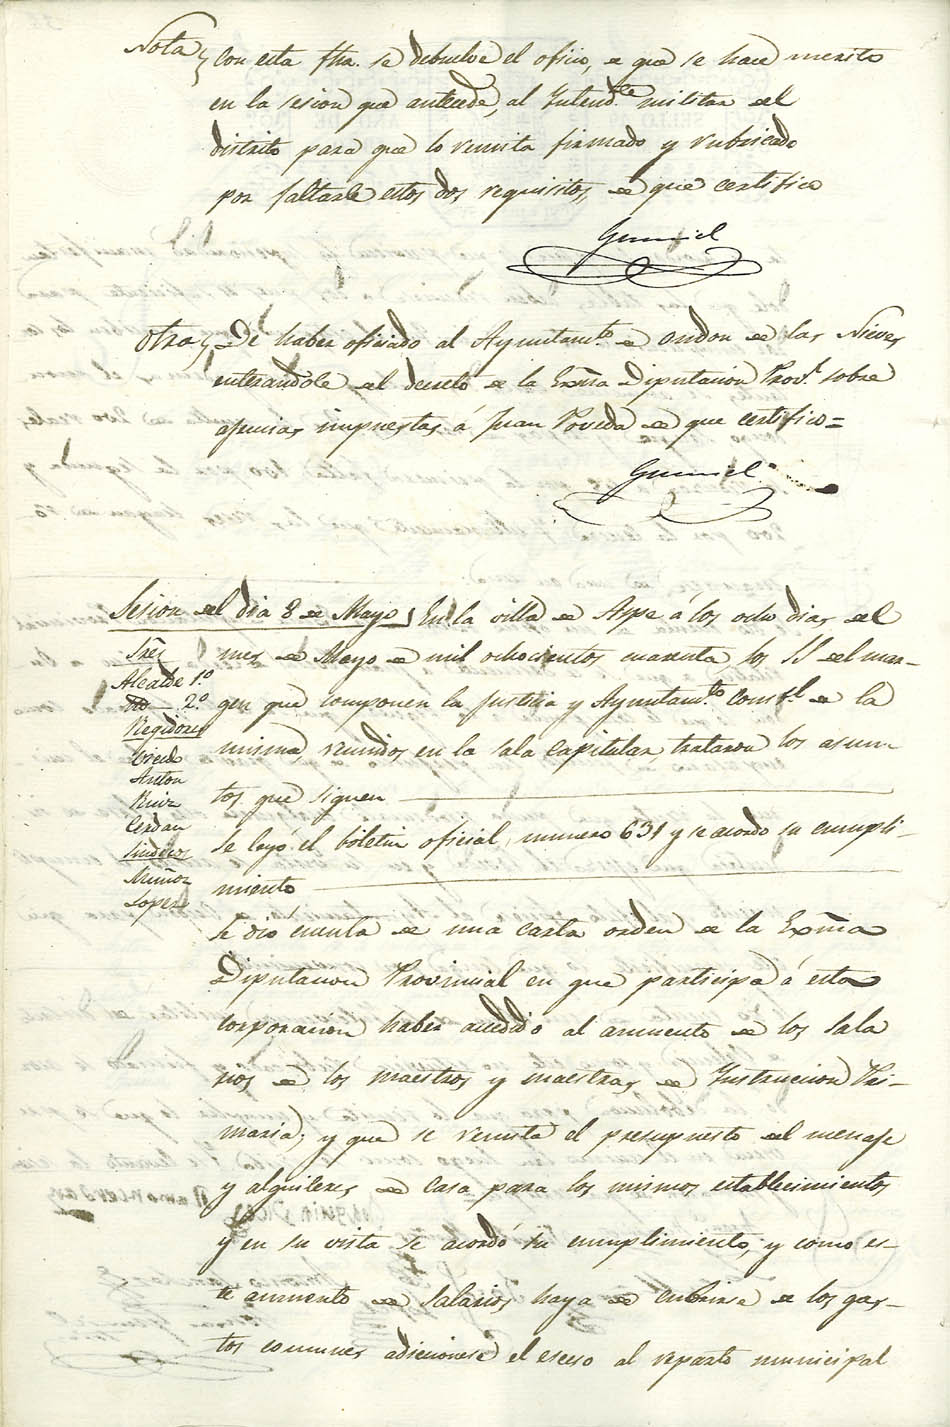 Nota Con esta fha. se debuelve el oficio, de que se hace merito
en la sesion que antecede, al Intend.te militar del
distrito para que lo remita firmado y rubricado
por faltarle estos dos requisitos, de que certifico
Gumiel
Otra De haber oficiado al Ayuntam.to de Ondon de las Nieves
enterandole del decreto de la Exma Diputacion Prov.l sobre
apremios impuestas á Juan Poveda de que certifico=
Gumiel
Sesion del dia 8 de Mayo En la villa de Aspe á los ocho dias del
mes de Mayo de mil ochocientos cuarenta los SS del mar-
gen que componen la Justicia y Ayuntam.to Const.l de la
misma, reunidos en la sala Capitular, trataron los asun
tos que siguen
Sres
Alcalde 1.º
2.º
Regidores
Anton
Ruiz
Cerdan
Sindicos
Muñoz
Lopez
Se leyó el boletin oficial, numero 631 y se acordo su cumpli-
miento
Se dió cuenta de una carta orden de la Exma
Diputacion Provincial en que participa á esta
corporacion haber accedido al aumento de los sala
rios de los maestros y maestras de Instruccion Pri-
maria; y que se remita el presupuesto del menaje
y alquileres de casa para los mismos establecimientos
y en su vista se acordó su cumplimiento; y como es-
te aumento de salarios haya de cubrirse de los gas-
tos comunes adicionese el esceso al reparto municipal